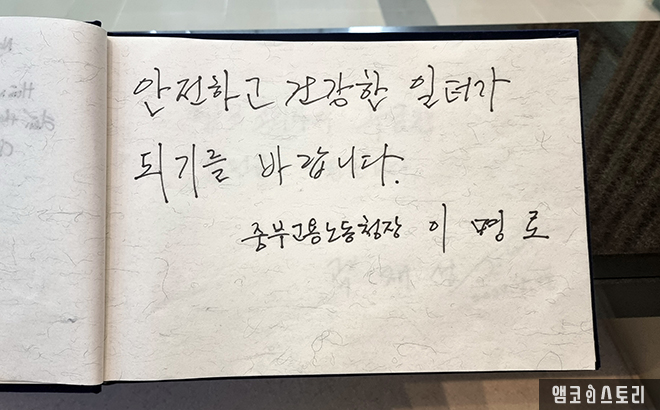 안전하고 건강한 일터가
되기를 바랍니다.
중부고용노동청장 이명로
앰코인스토리